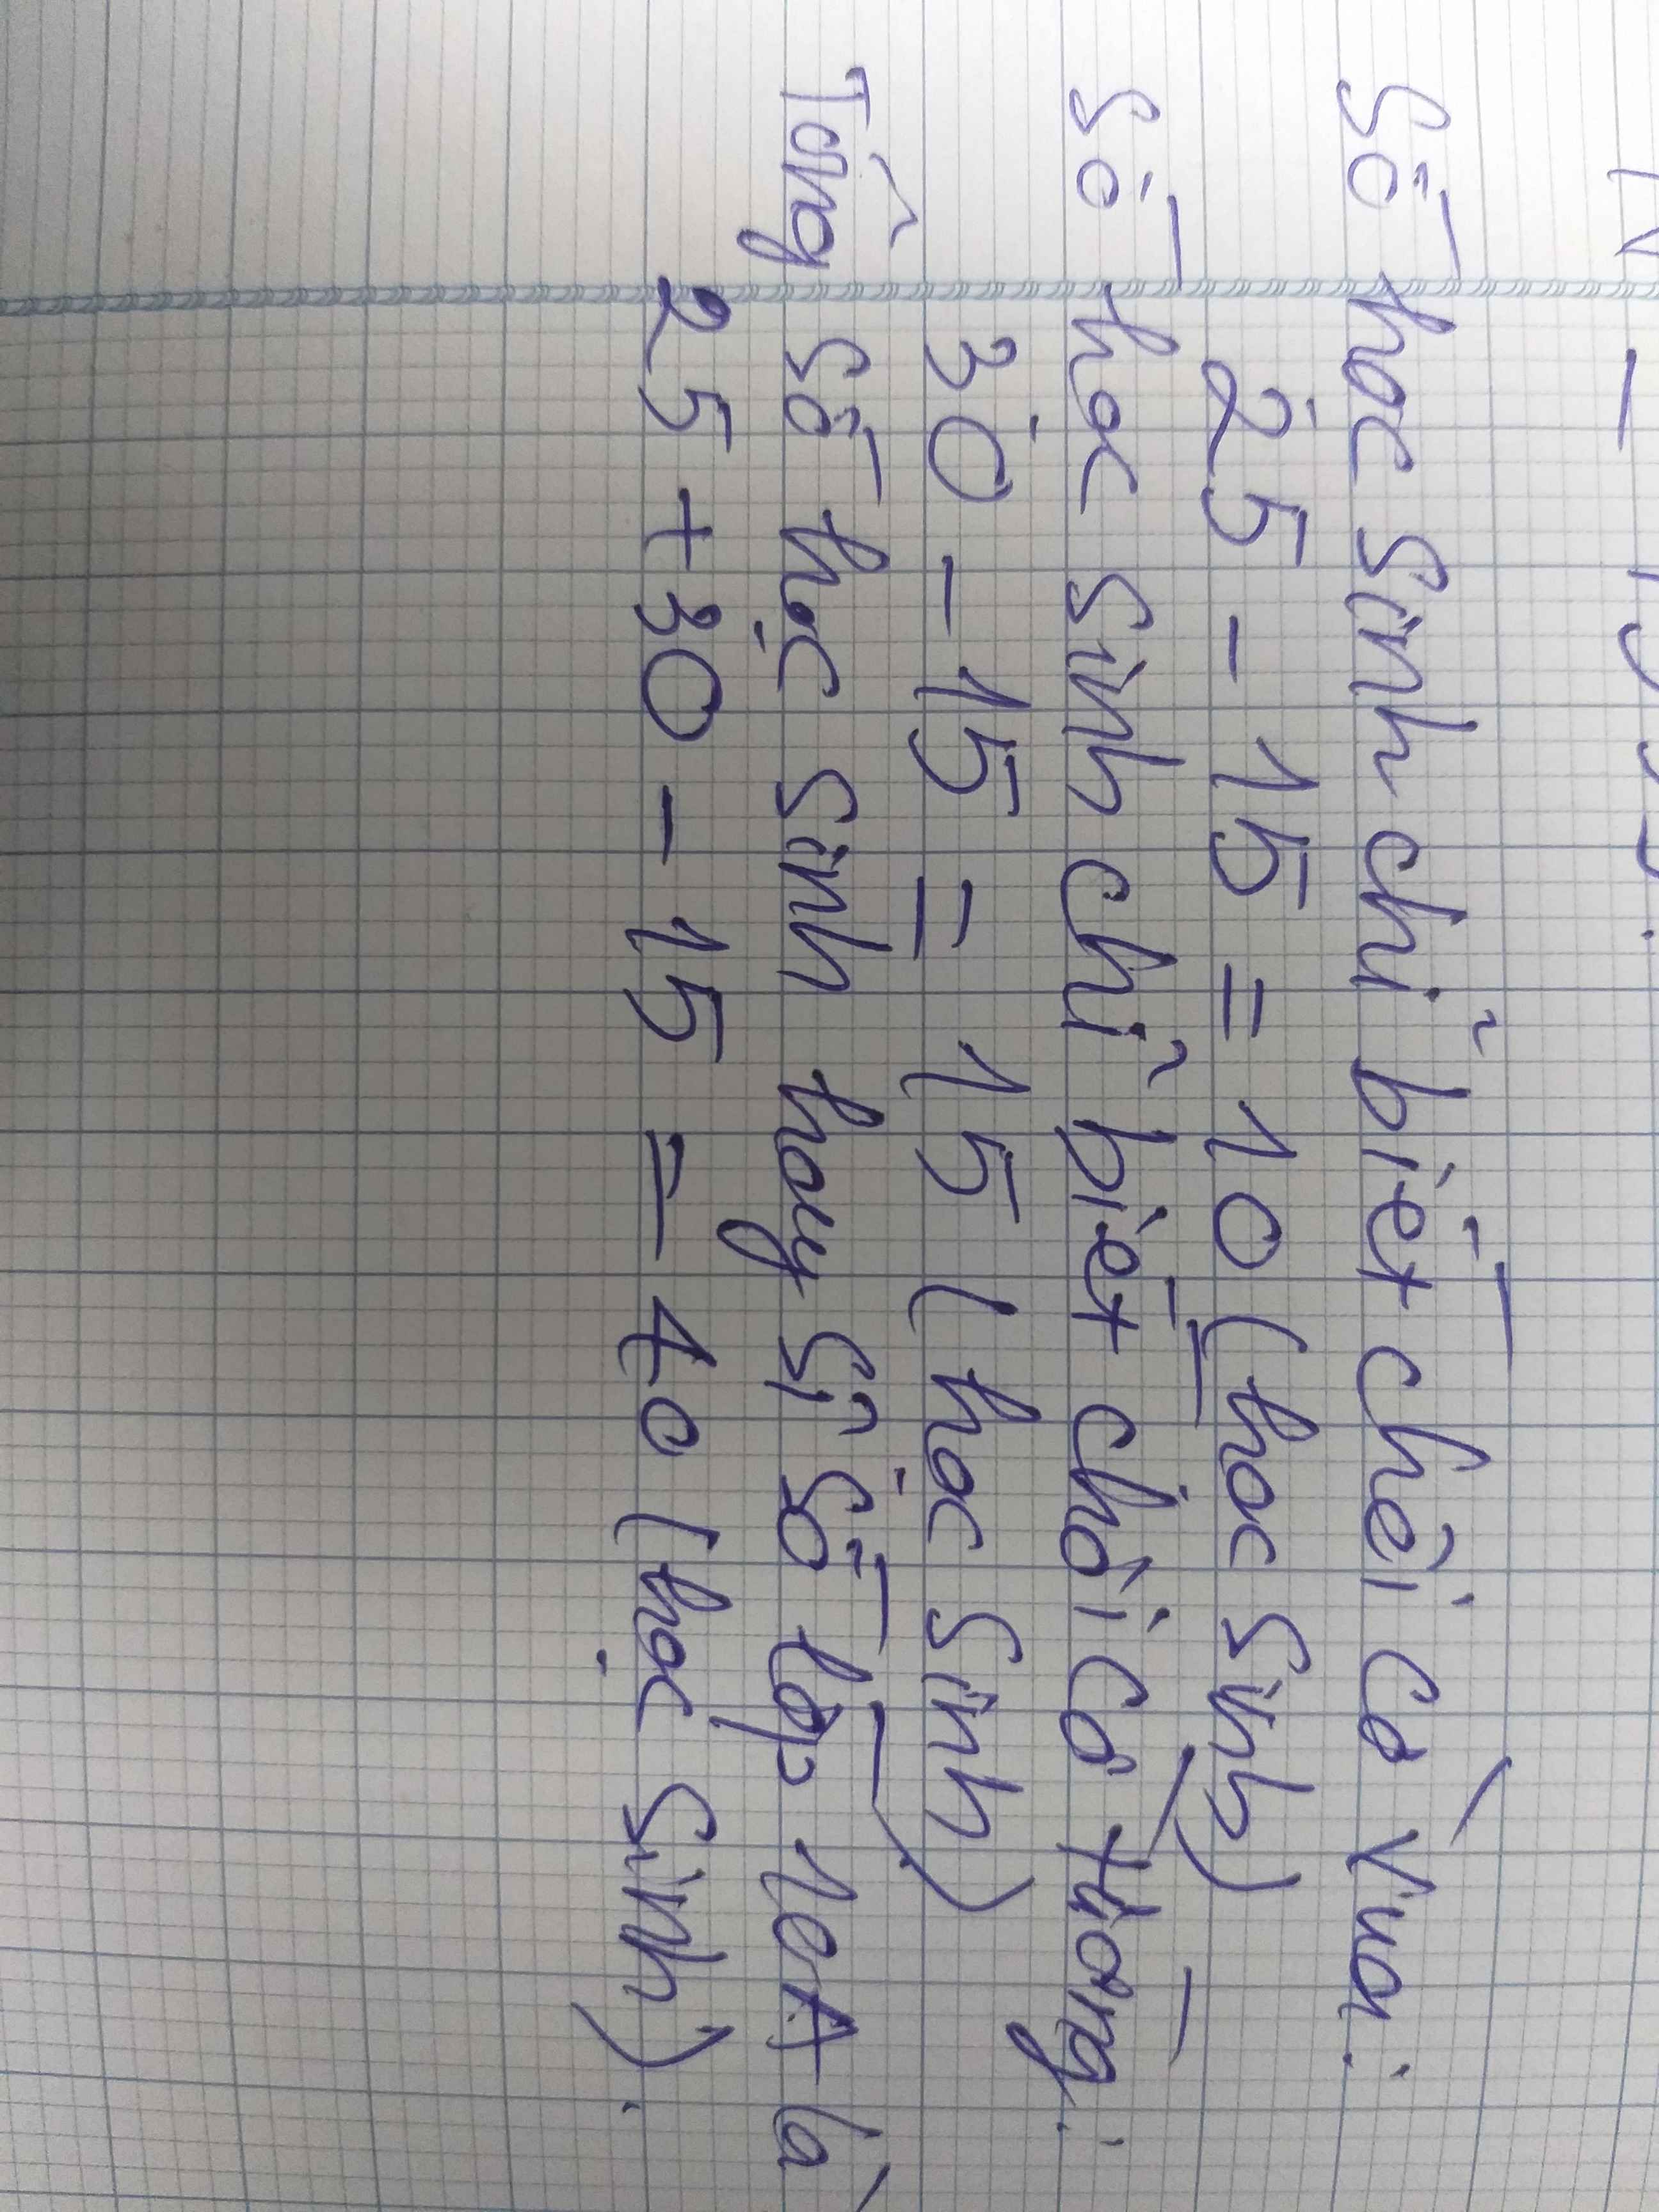 Số học sinh chỉ biết chơi cờ vua:
25 - 15 = 10 (học sinh)
Số học sinh chỉ biết chơi cờ tướng:
30 - 15 = 15 (học sinh)
Tổng số học sinh hay sĩ số lớp 10A là
25 + 30 - 15 = 40 (học sinh).